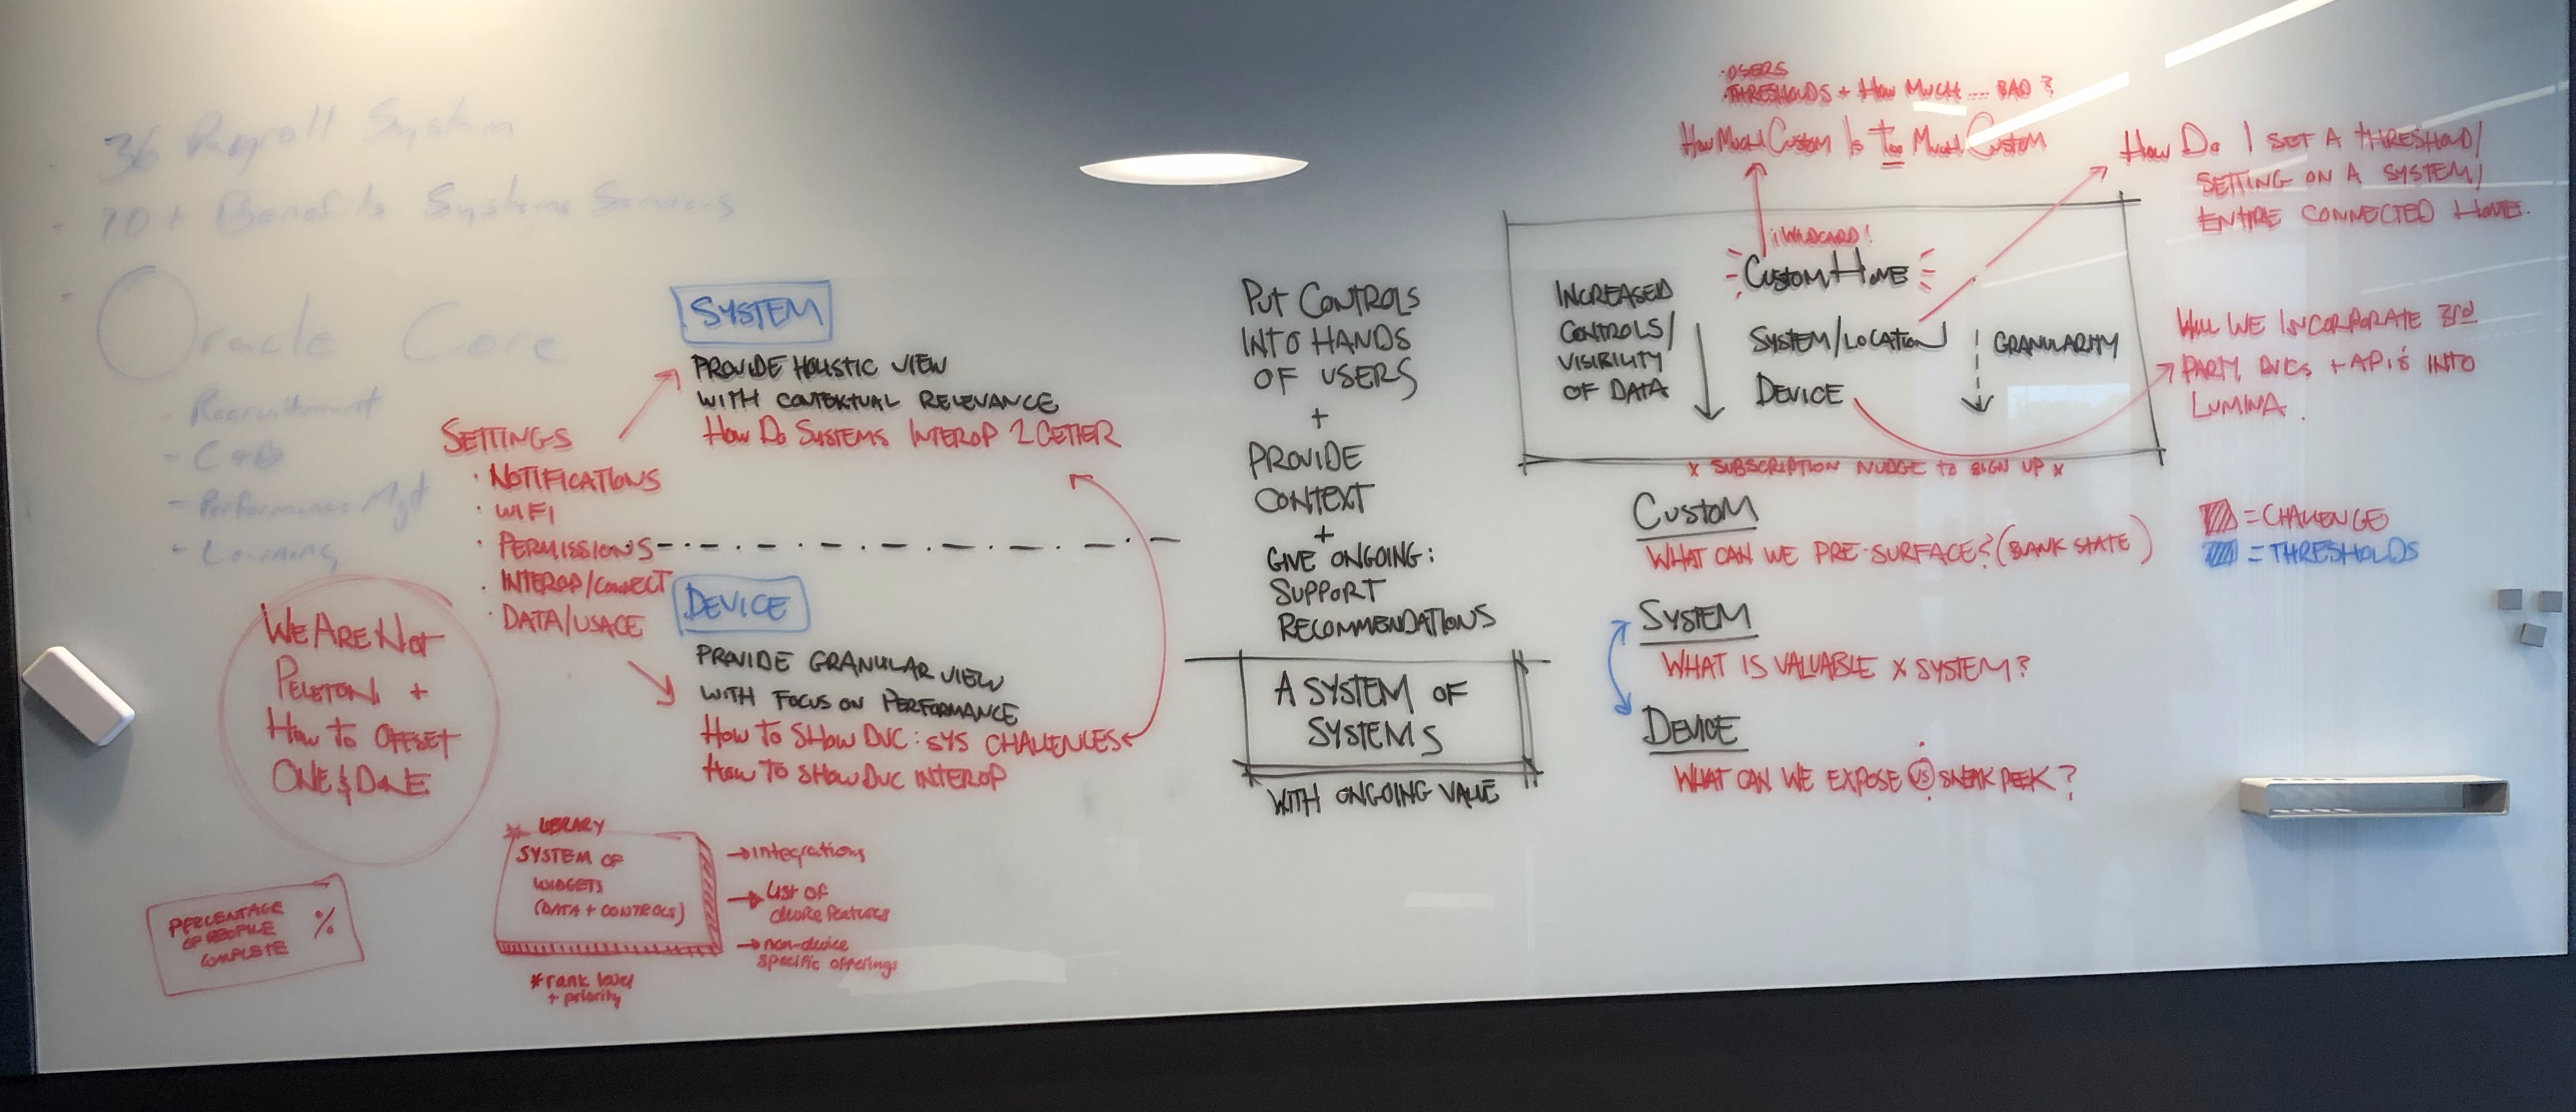 36 Payroll System
- 70+ Benefits Systems Services
- Oracle Core
- Recruitment
- Performance Mgt
- Learning
SETTINGS
· NOTIFICATIONS
· WIFI
· PERMISSIONS
· INTEROP/CONNECT
· DATA/USAGE
WE ARE NOT
PELETON +
HOW TO OFFSET
ONE & DONE
PERCENTAGE
OF PROFILE
COMPLETE
%
SYSTEM
PROVIDE HOLISTIC VIEW
WITH CONTEXTUAL RELEVANCE
HOW DO SYSTEMS INTEROP 2GETHER
DEVICE
PROVIDE GRANULAR VIEW
WITH FOCUS ON PERFORMANCE
HOW TO SHOW DVC: SYS CHALLENGES
HOW TO SHOW DVC INTEROP
* LIBRARY
SYSTEM OF
WIDGETS
(DATA + CONTROLS)
→ integrations
→ LIST OF
device features
→ non-device
specific offerings
* rank level
+ priority
PUT CONTROLS
INTO HANDS
OF USERS
+
PROVIDE
CONTEXT
+
GIVE ONGOING:
SUPPORT
RECOMMENDATIONS
A SYSTEM OF
SYSTEMS
WITH ONGOING VALUE
· USERS
· THRESHOLDS + HOW MUCH .... BAD ?
HOW MUCH CUSTOM IS TOO MUCH CUSTOM
HOW DO I SET A THRESHOLD/
SETTING ON A SYSTEM/
ENTIRE CONNECTED HOME.
¡WILDCARD!
CUSTOM HOME
INCREASED
CONTROLS/
VISIBILITY
OF DATA
SYSTEM/LOCATION
DEVICE
GRANULARITY
WILL WE INCORPORATE 3rd
PARTY DVCs + API'S INTO
LUMINA.
x SUBSCRIPTION NUDGE TO SIGN UP x
CUSTOM
WHAT CAN WE PRE-SURFACE? (BLANK STATE)
SYSTEM
WHAT IS VALUABLE x SYSTEM?
DEVICE
WHAT CAN WE EXPOSE VS SNEAK PEEK?
= CHALLENGE
= THRESHOLDS